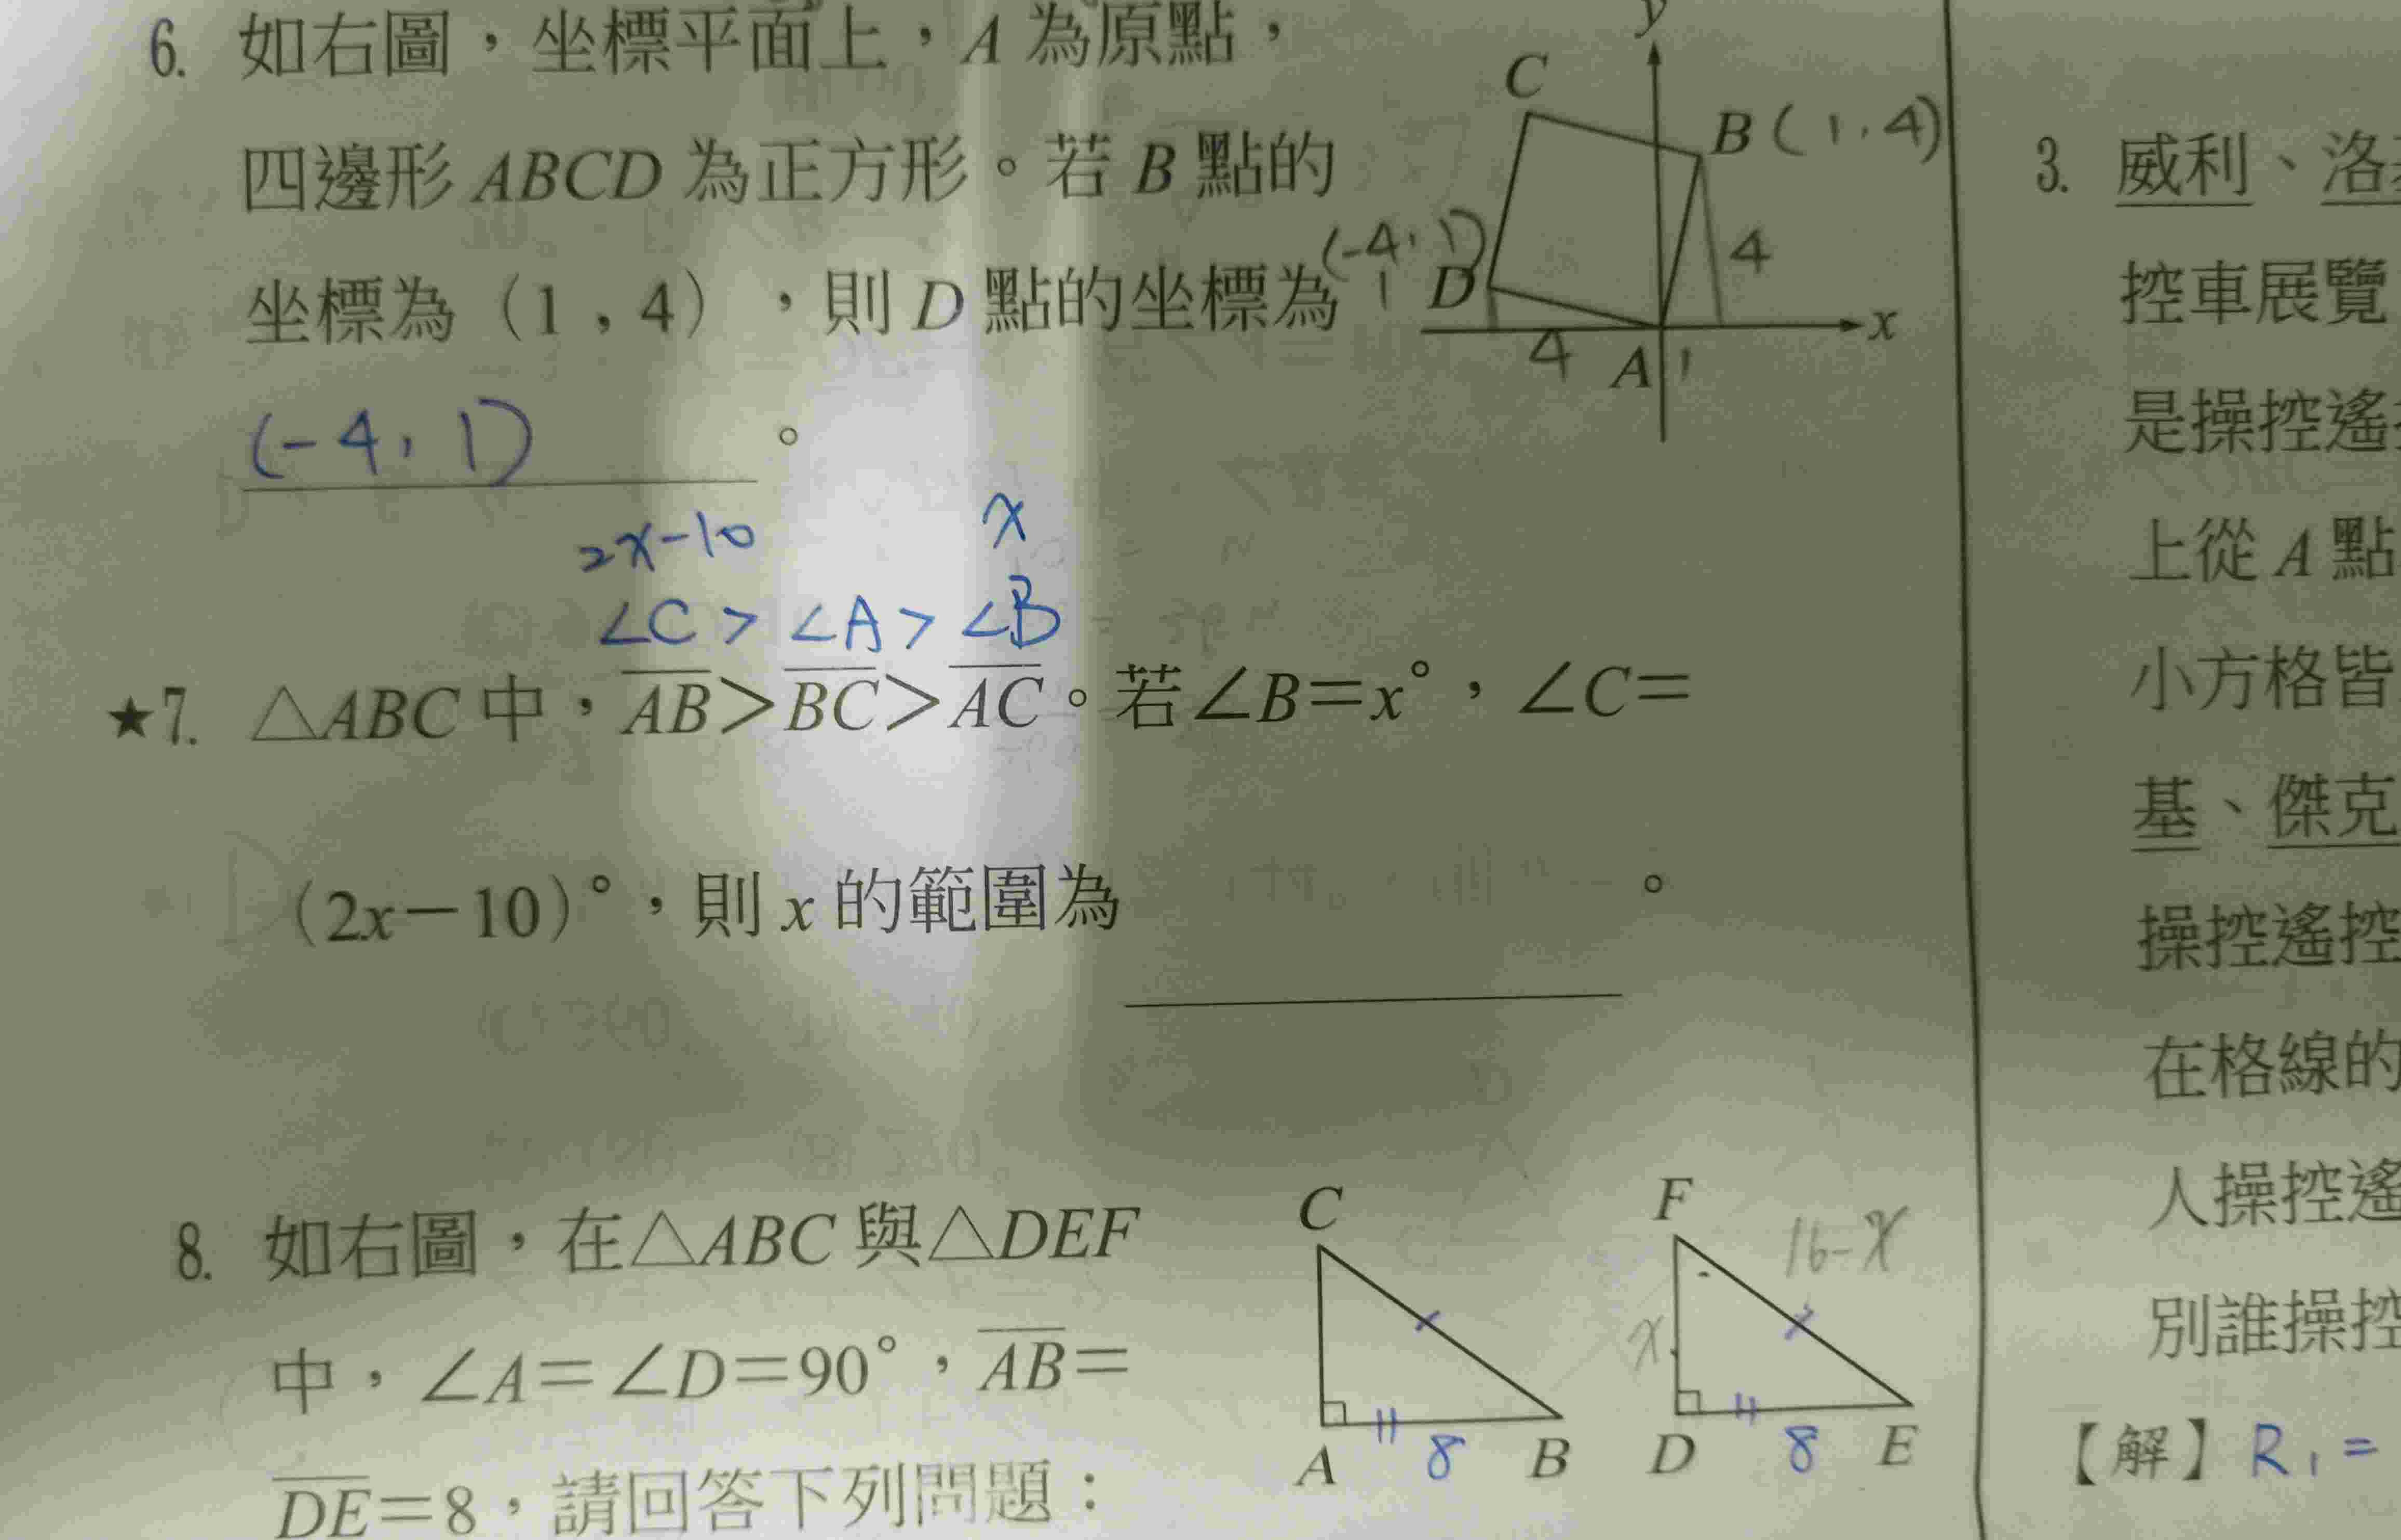 6. 如右圖，坐標平面上，A 為原點，
四邊形 ABCD 為正方形。若 B 點的
坐標為（1 , 4），則 D 點的坐標為
(-4, 1)。
y
C
B (1, 4)
(-4, 1)
1 D
4
x
4 A 1
2x-10 x
∠C > ∠A > ∠B
★7. △ABC 中，AB＞BC＞AC。若∠B＝x°，∠C＝
（2x－10）°，則 x 的範圍為 。
8. 如右圖，在△ABC 與△DEF
中，∠A＝∠D＝90°，AB＝
DE＝8，請回答下列問題：
C
A 8 B
F
16-x
x
D 8 E
3. 威利、洛
控車展覽
是操控遙
上從 A 點
小方格皆
基、傑克
操控遙控
在格線的
人操控遙
別誰操控
【解】R1 =